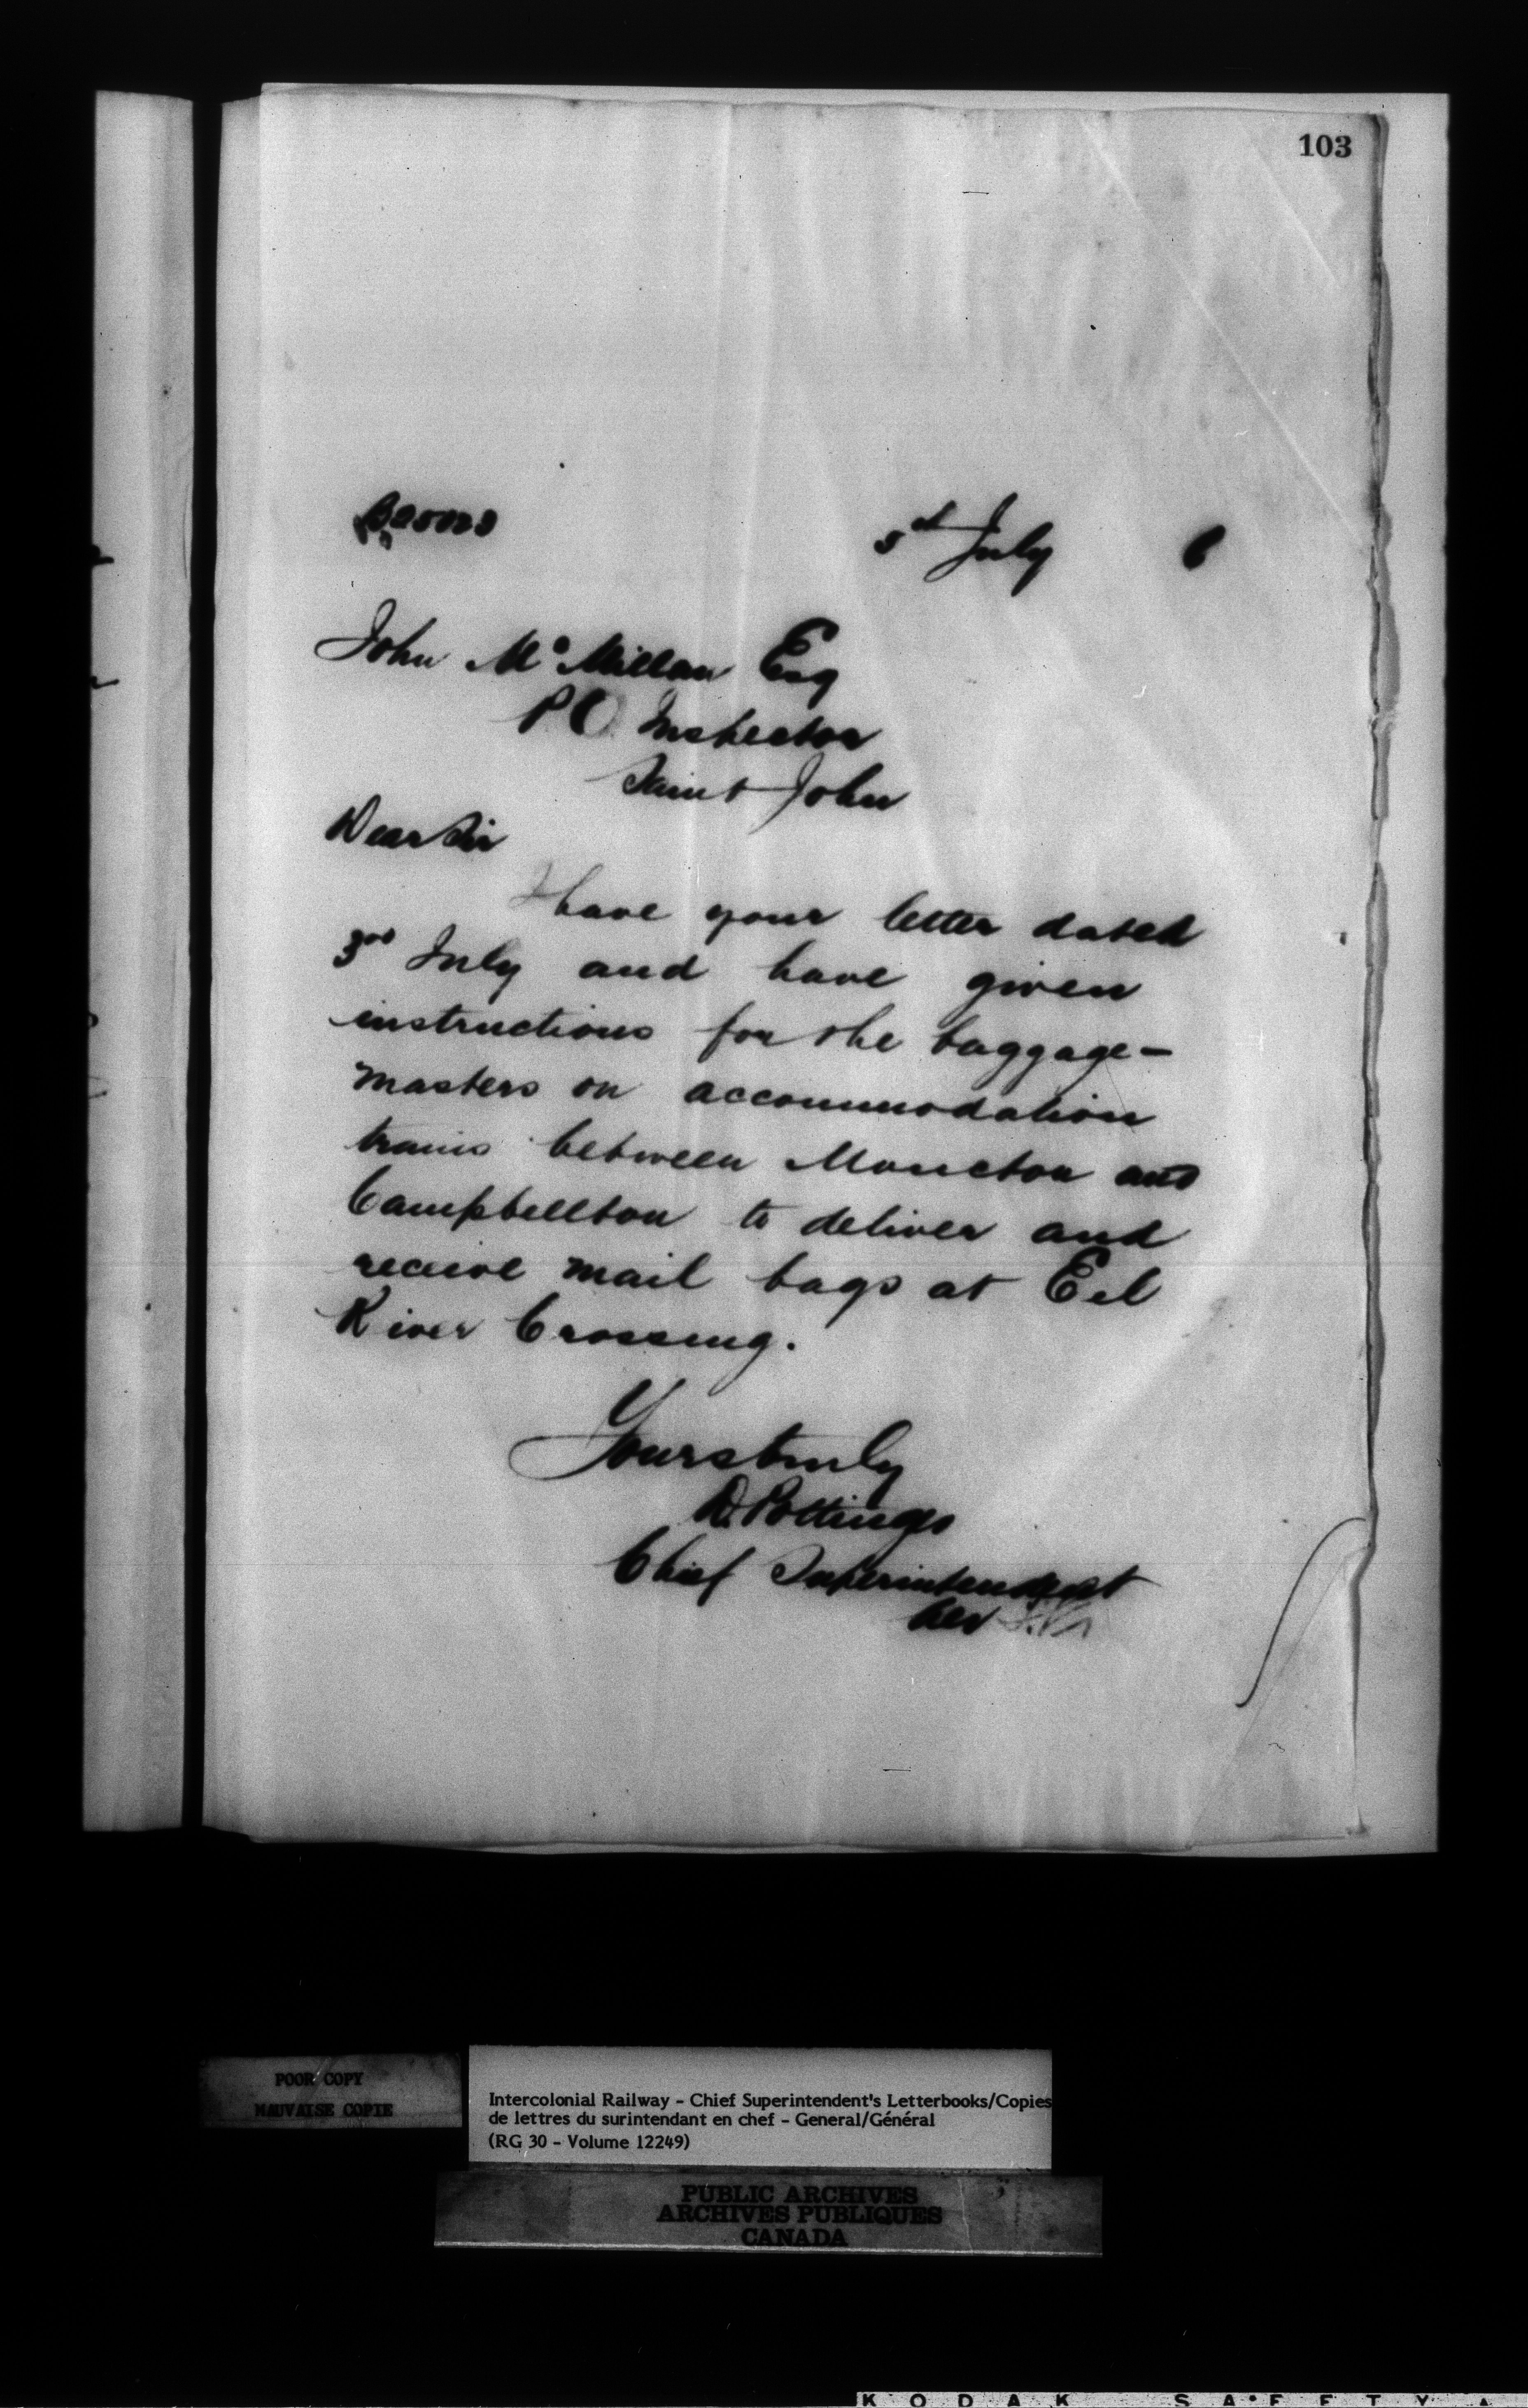 103
5th July 6
John McMillan Esq
P.O. Inspector
Saint John
Dear Sir
I have your letter dated
3rd July and have given
instructions for the baggage-
masters on accommodation
trains between Moncton and
Campbellton to deliver and
receive mail bags at Eel
River Crossing.
Yours truly
D. Pottinger
Chief Superintendent
POOR COPY
MAUVAISE COPIE
Intercolonial Railway - Chief Superintendent's Letterbooks/Copies
de lettres du surintendant en chef - General/Général
(RG 30 - Volume 12249)
PUBLIC ARCHIVES
ARCHIVES PUBLIQUES
CANADA
KODAK SAFETY